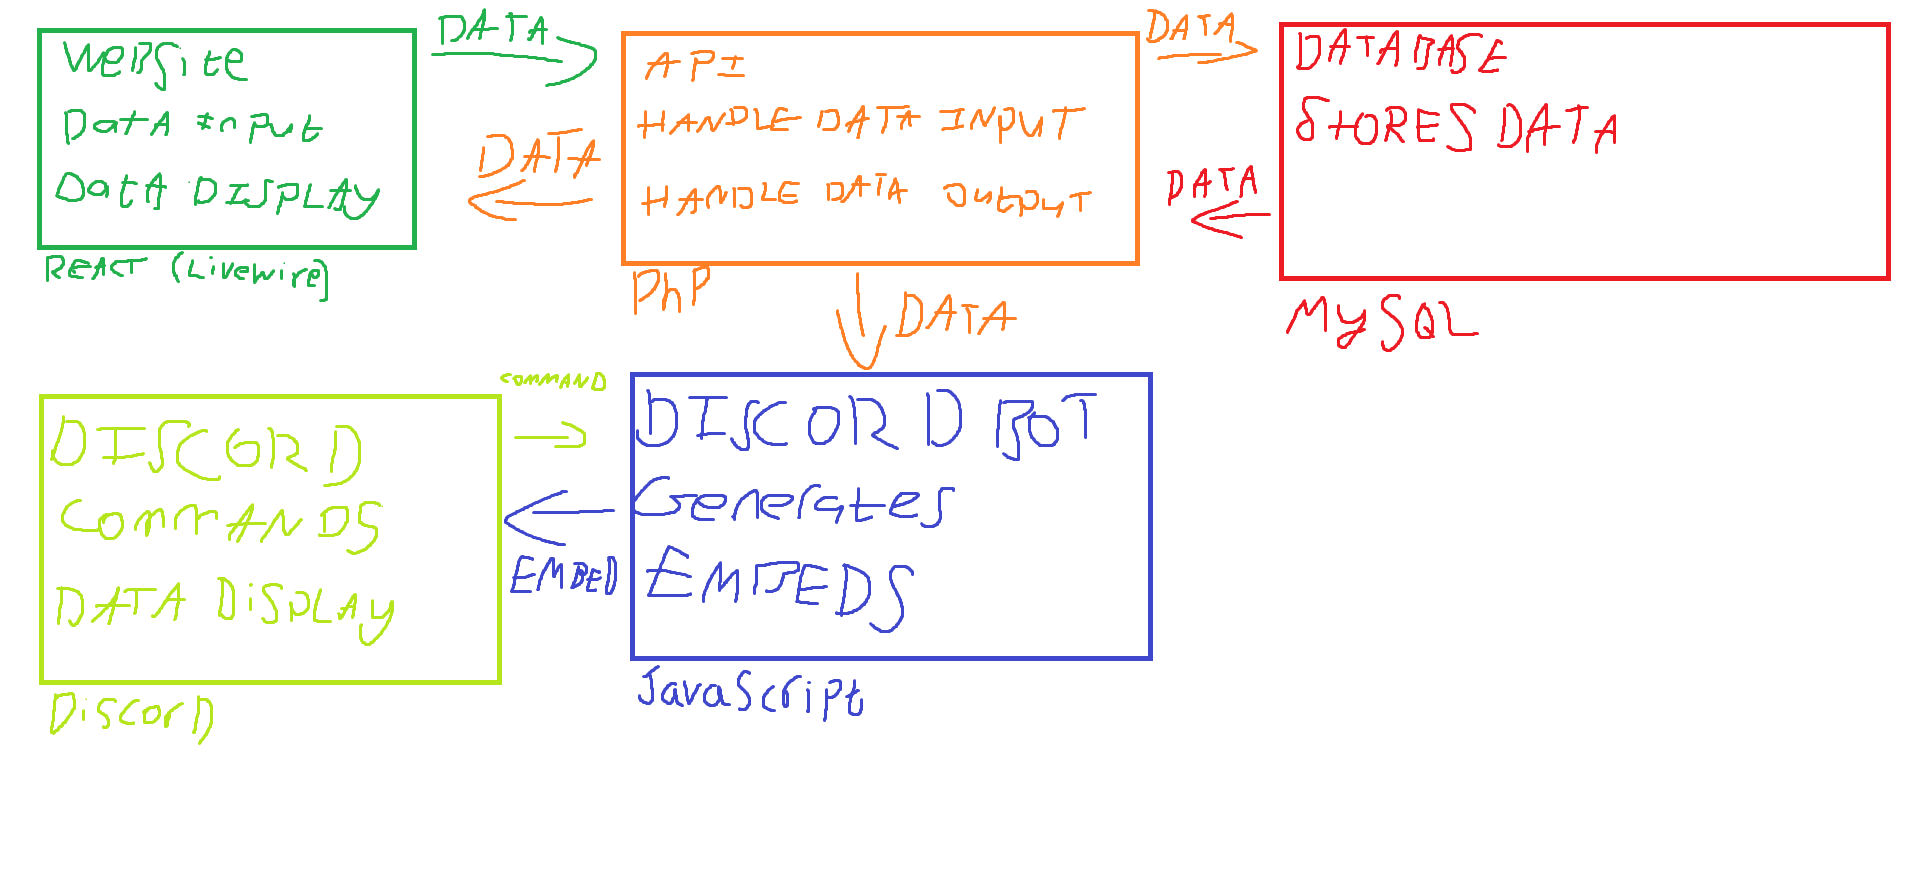 WeBSite
DatA InPut
DatA DISPLAY
REACT (Livewire)
DATA
DATA
API
HANDLE DATA INPUT
HANDLE DATA OUtPUT
PhP
DATA
DATA
DATABASE
StORES DATA
MySQL
DATA
COMMAND
EMBED
DISCORD
CommANDS
DATA DiSPLAy
DiscorD
DISCORD BOT
Generates
EMBEDS
JavaScript